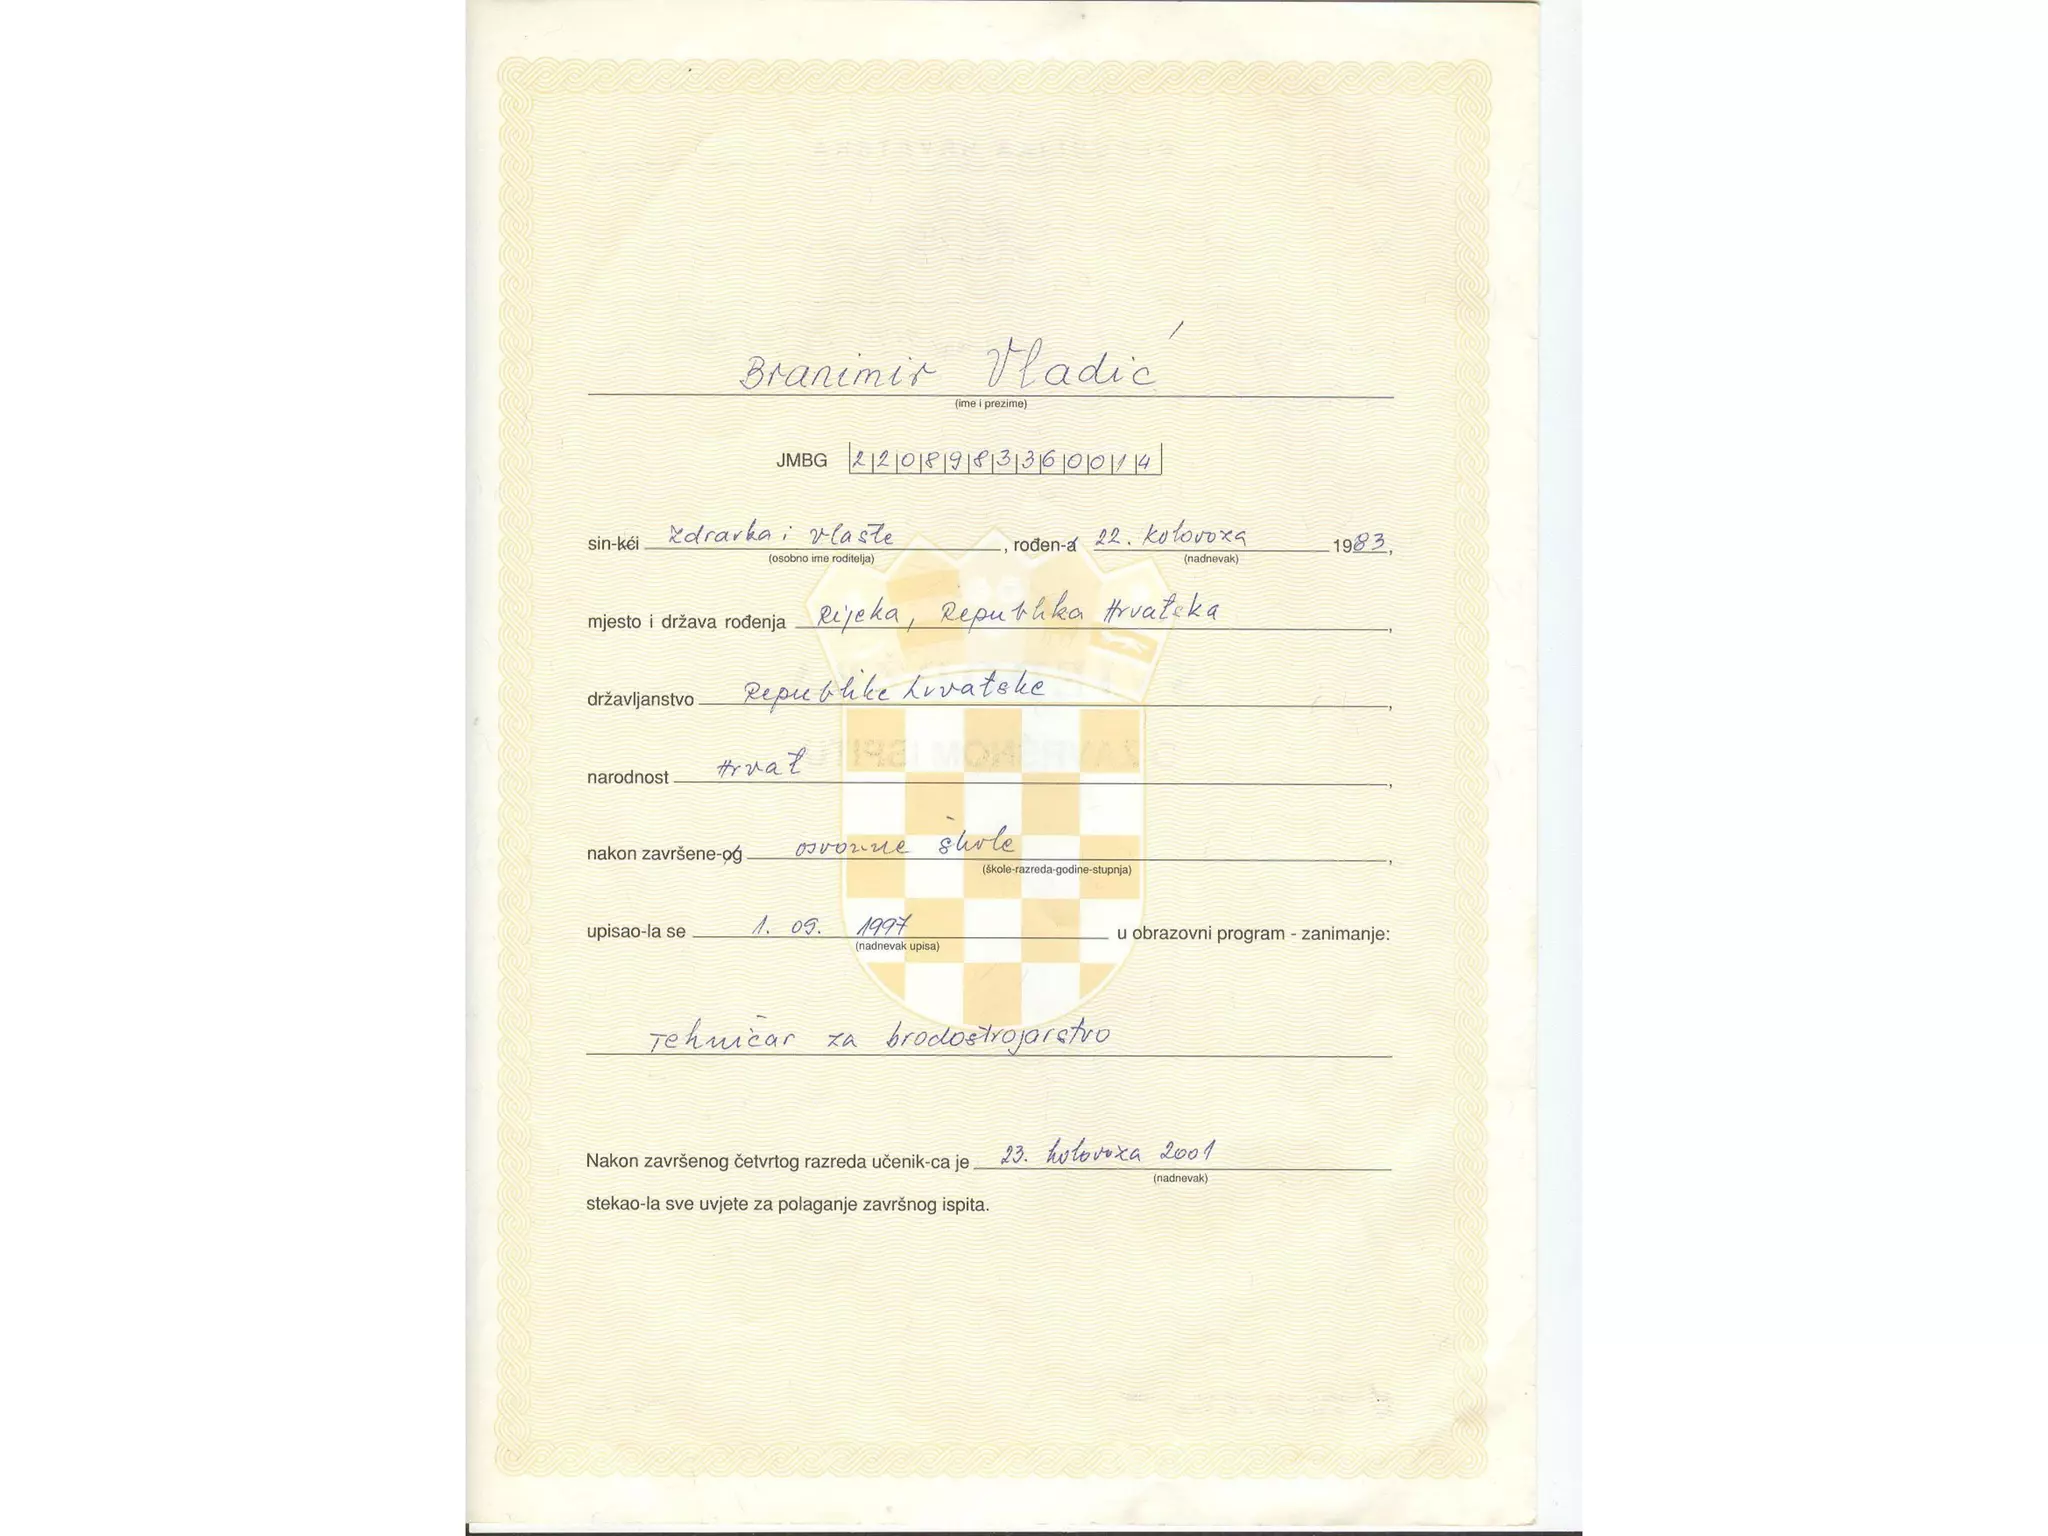 Branimir Vladić
(ime i prezime)
JMBG 2208983360014
sin-kći Zdravka i Vlaste, rođen-a 22. kolovoza 1983,
(osobno ime roditelja) (nadnevak)
mjesto i država rođenja Rijeka, Republika Hrvatska,
državljanstvo Republike hrvatske,
narodnost Hrvat,
nakon završene-og osnovne škole,
(škole-razreda-godine-stupnja)
upisao-la se 1. 09. 1997 u obrazovni program - zanimanje:
(nadnevak upisa)
Tehničar za brodostrojarstvo
Nakon završenog četvrtog razreda učenik-ca je 23. kolovoza 2001
(nadnevak)
stekao-la sve uvjete za polaganje završnog ispita.